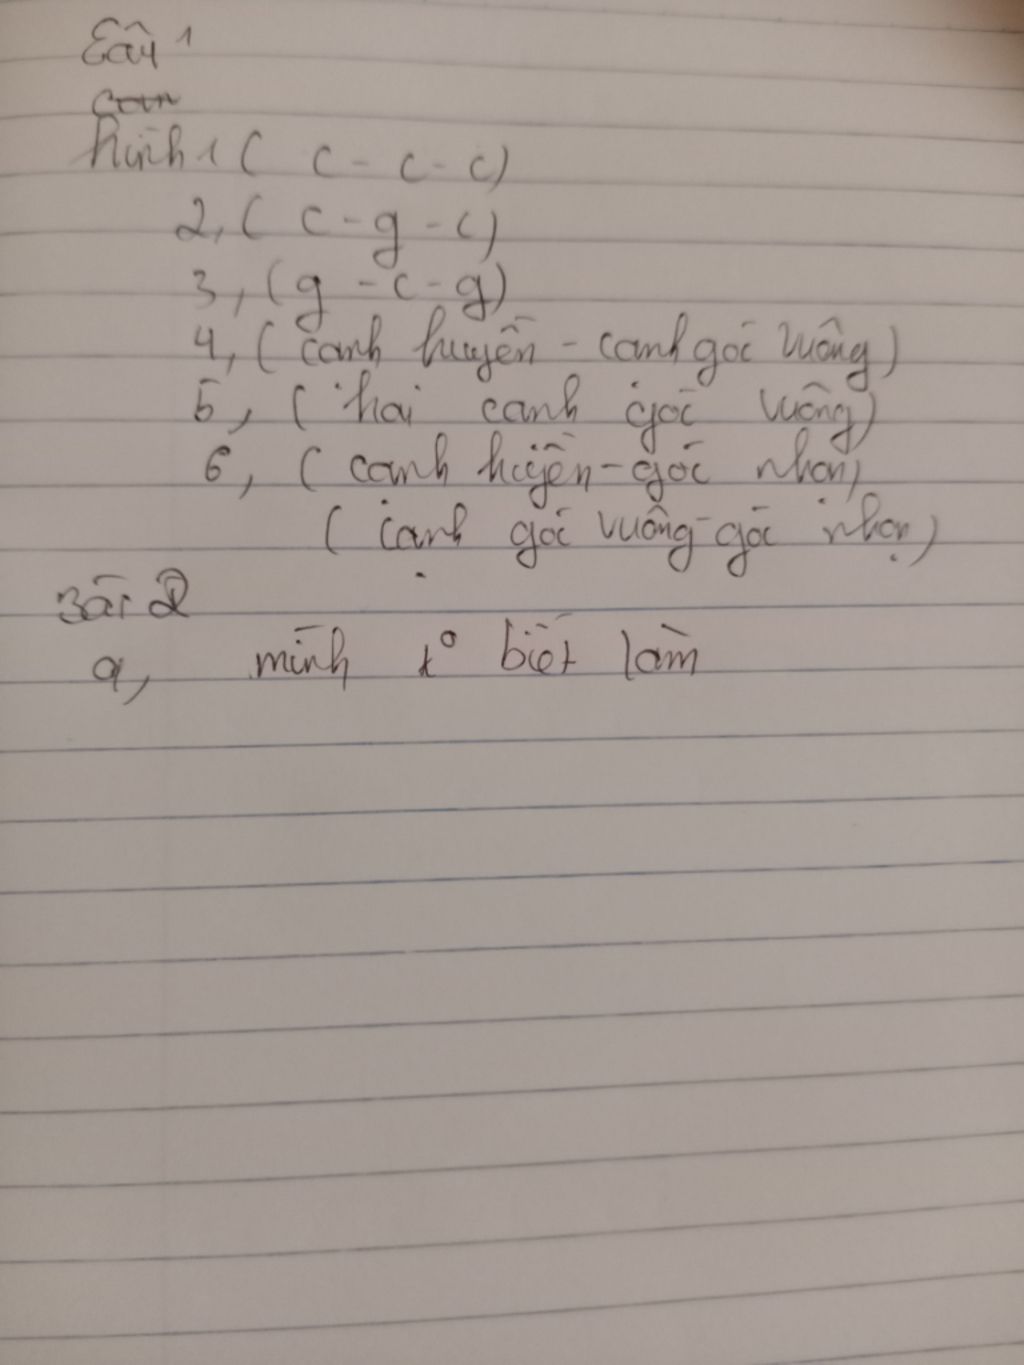 Câu 1
hình 1 ( c - c - c)
2, ( c - g - c)
3, (g - c - g)
4, ( canh huyền - canh góc vuông)
5, ( hai canh góc vuông)
6, ( canh huyền - góc nhon)
( cạnh góc vuông - góc nhọn)
Bài 2
a, mình ko biết làm